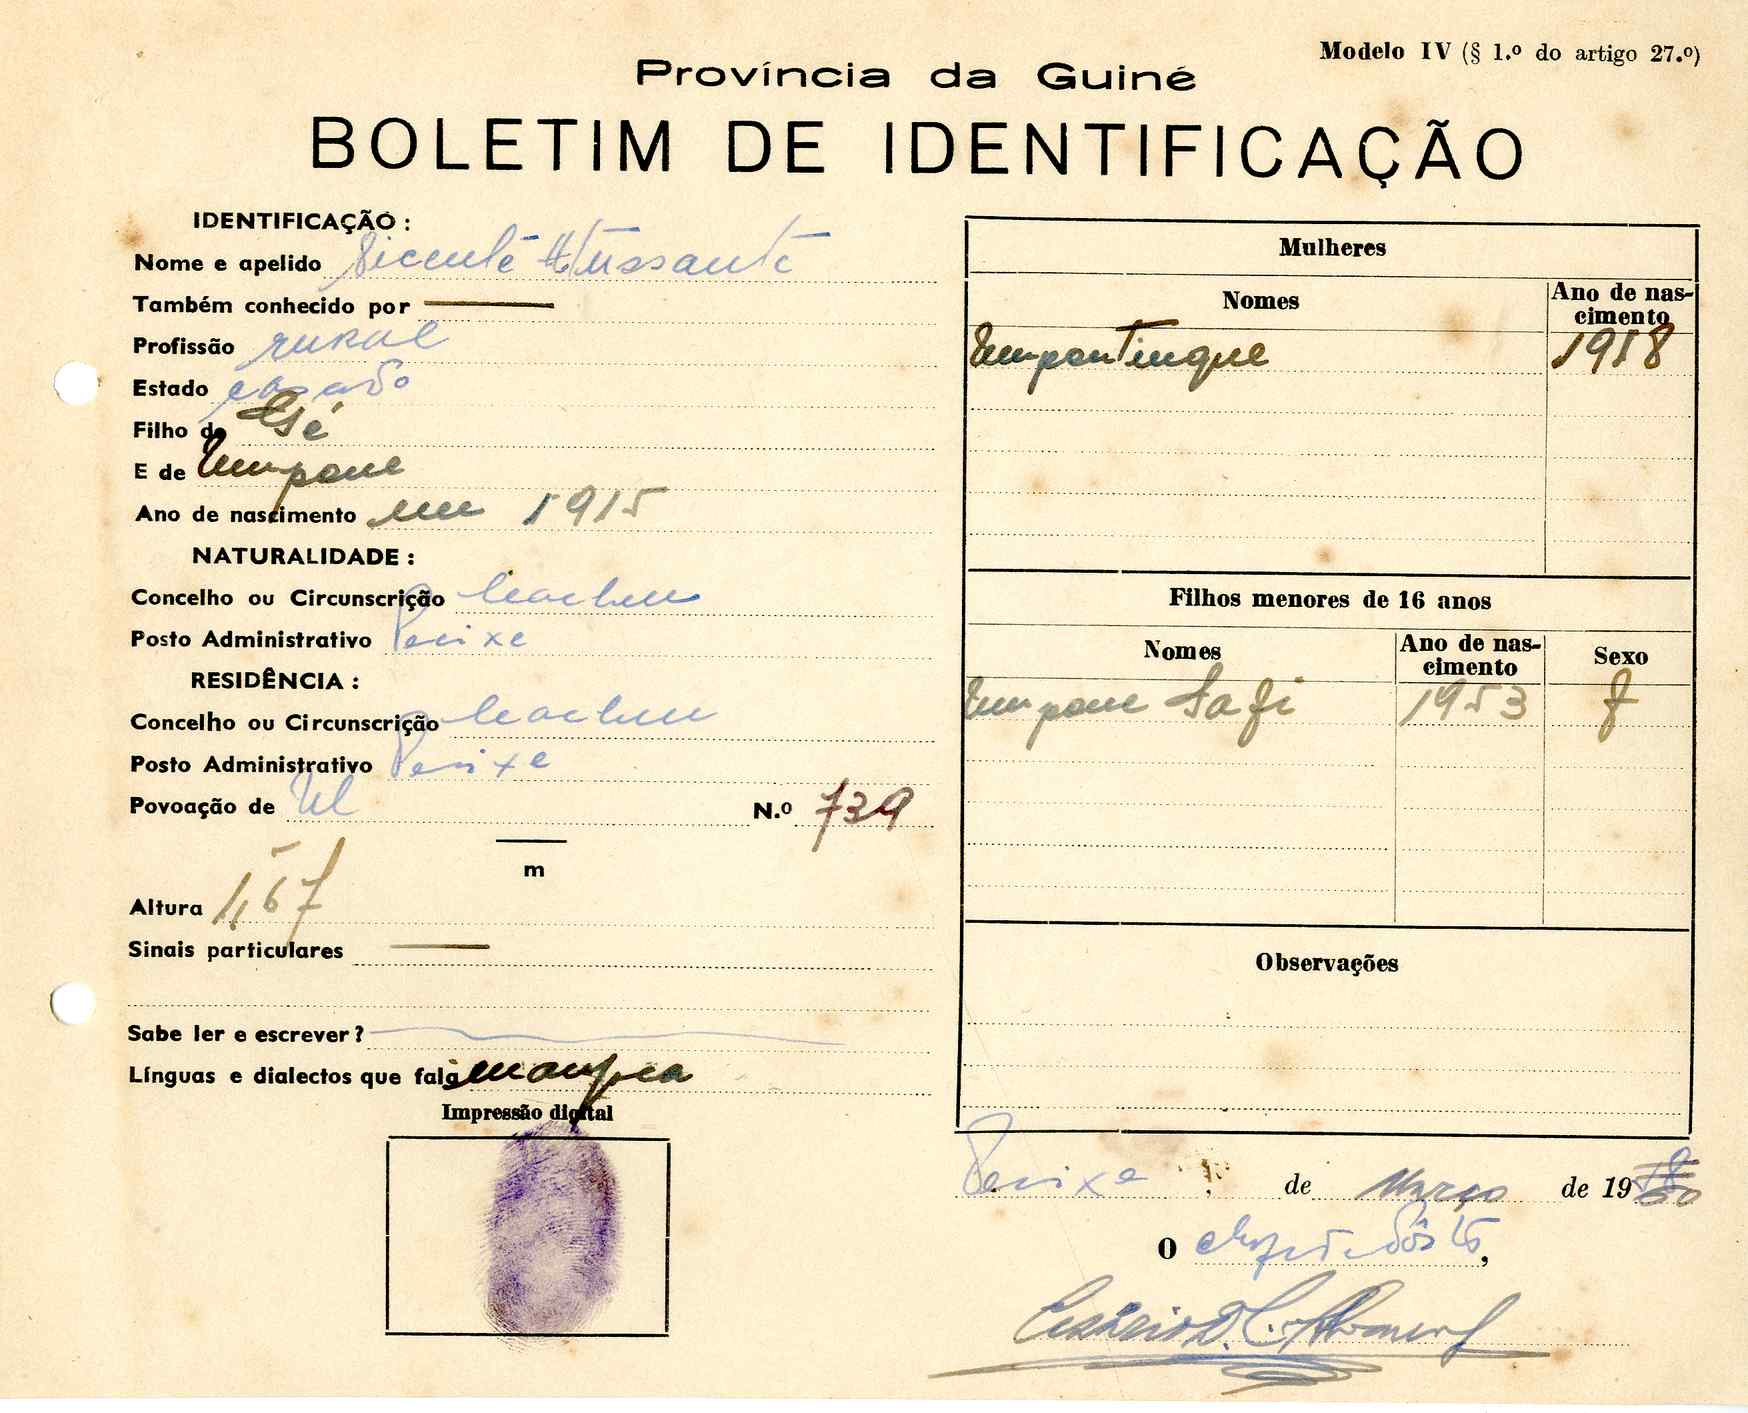 Modelo IV (§ 1.º do artigo 27.º)
Província da Guiné
BOLETIM DE IDENTIFICAÇÃO
IDENTIFICAÇÃO :
Nome e apelido Vicente
Também conhecido por
Profissão rural
Estado casado
Filho de
E de Umpane
Ano de nascimento em 1915
NATURALIDADE :
Concelho ou Circunscrição Cacheu
Posto Administrativo Pecixe
RESIDÊNCIA :
Concelho ou Circunscrição Cacheu
Posto Administrativo Pecixe
Povoação de
N.º 739
m
Altura 1,67
Sinais particulares
Sabe ler e escrever?
Línguas e dialectos que fala manjaca
Impressão digital
Mulheres
Nomes
Ano de nascimento
1918
Filhos menores de 16 anos
Nomes
Ano de nascimento
Sexo
Umpane Safi 1953 f
Observações
Pecixe de Março de 19
O chefe de Pôsto,